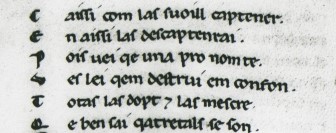 C aissi com las suoill captener.
E n aissi las descaptenrai.
P ois vei qe una pro nom te.
V es lei qem destrui em confon.
T otas las dopt 7 las mescre.
E ben sai qatretals se son.